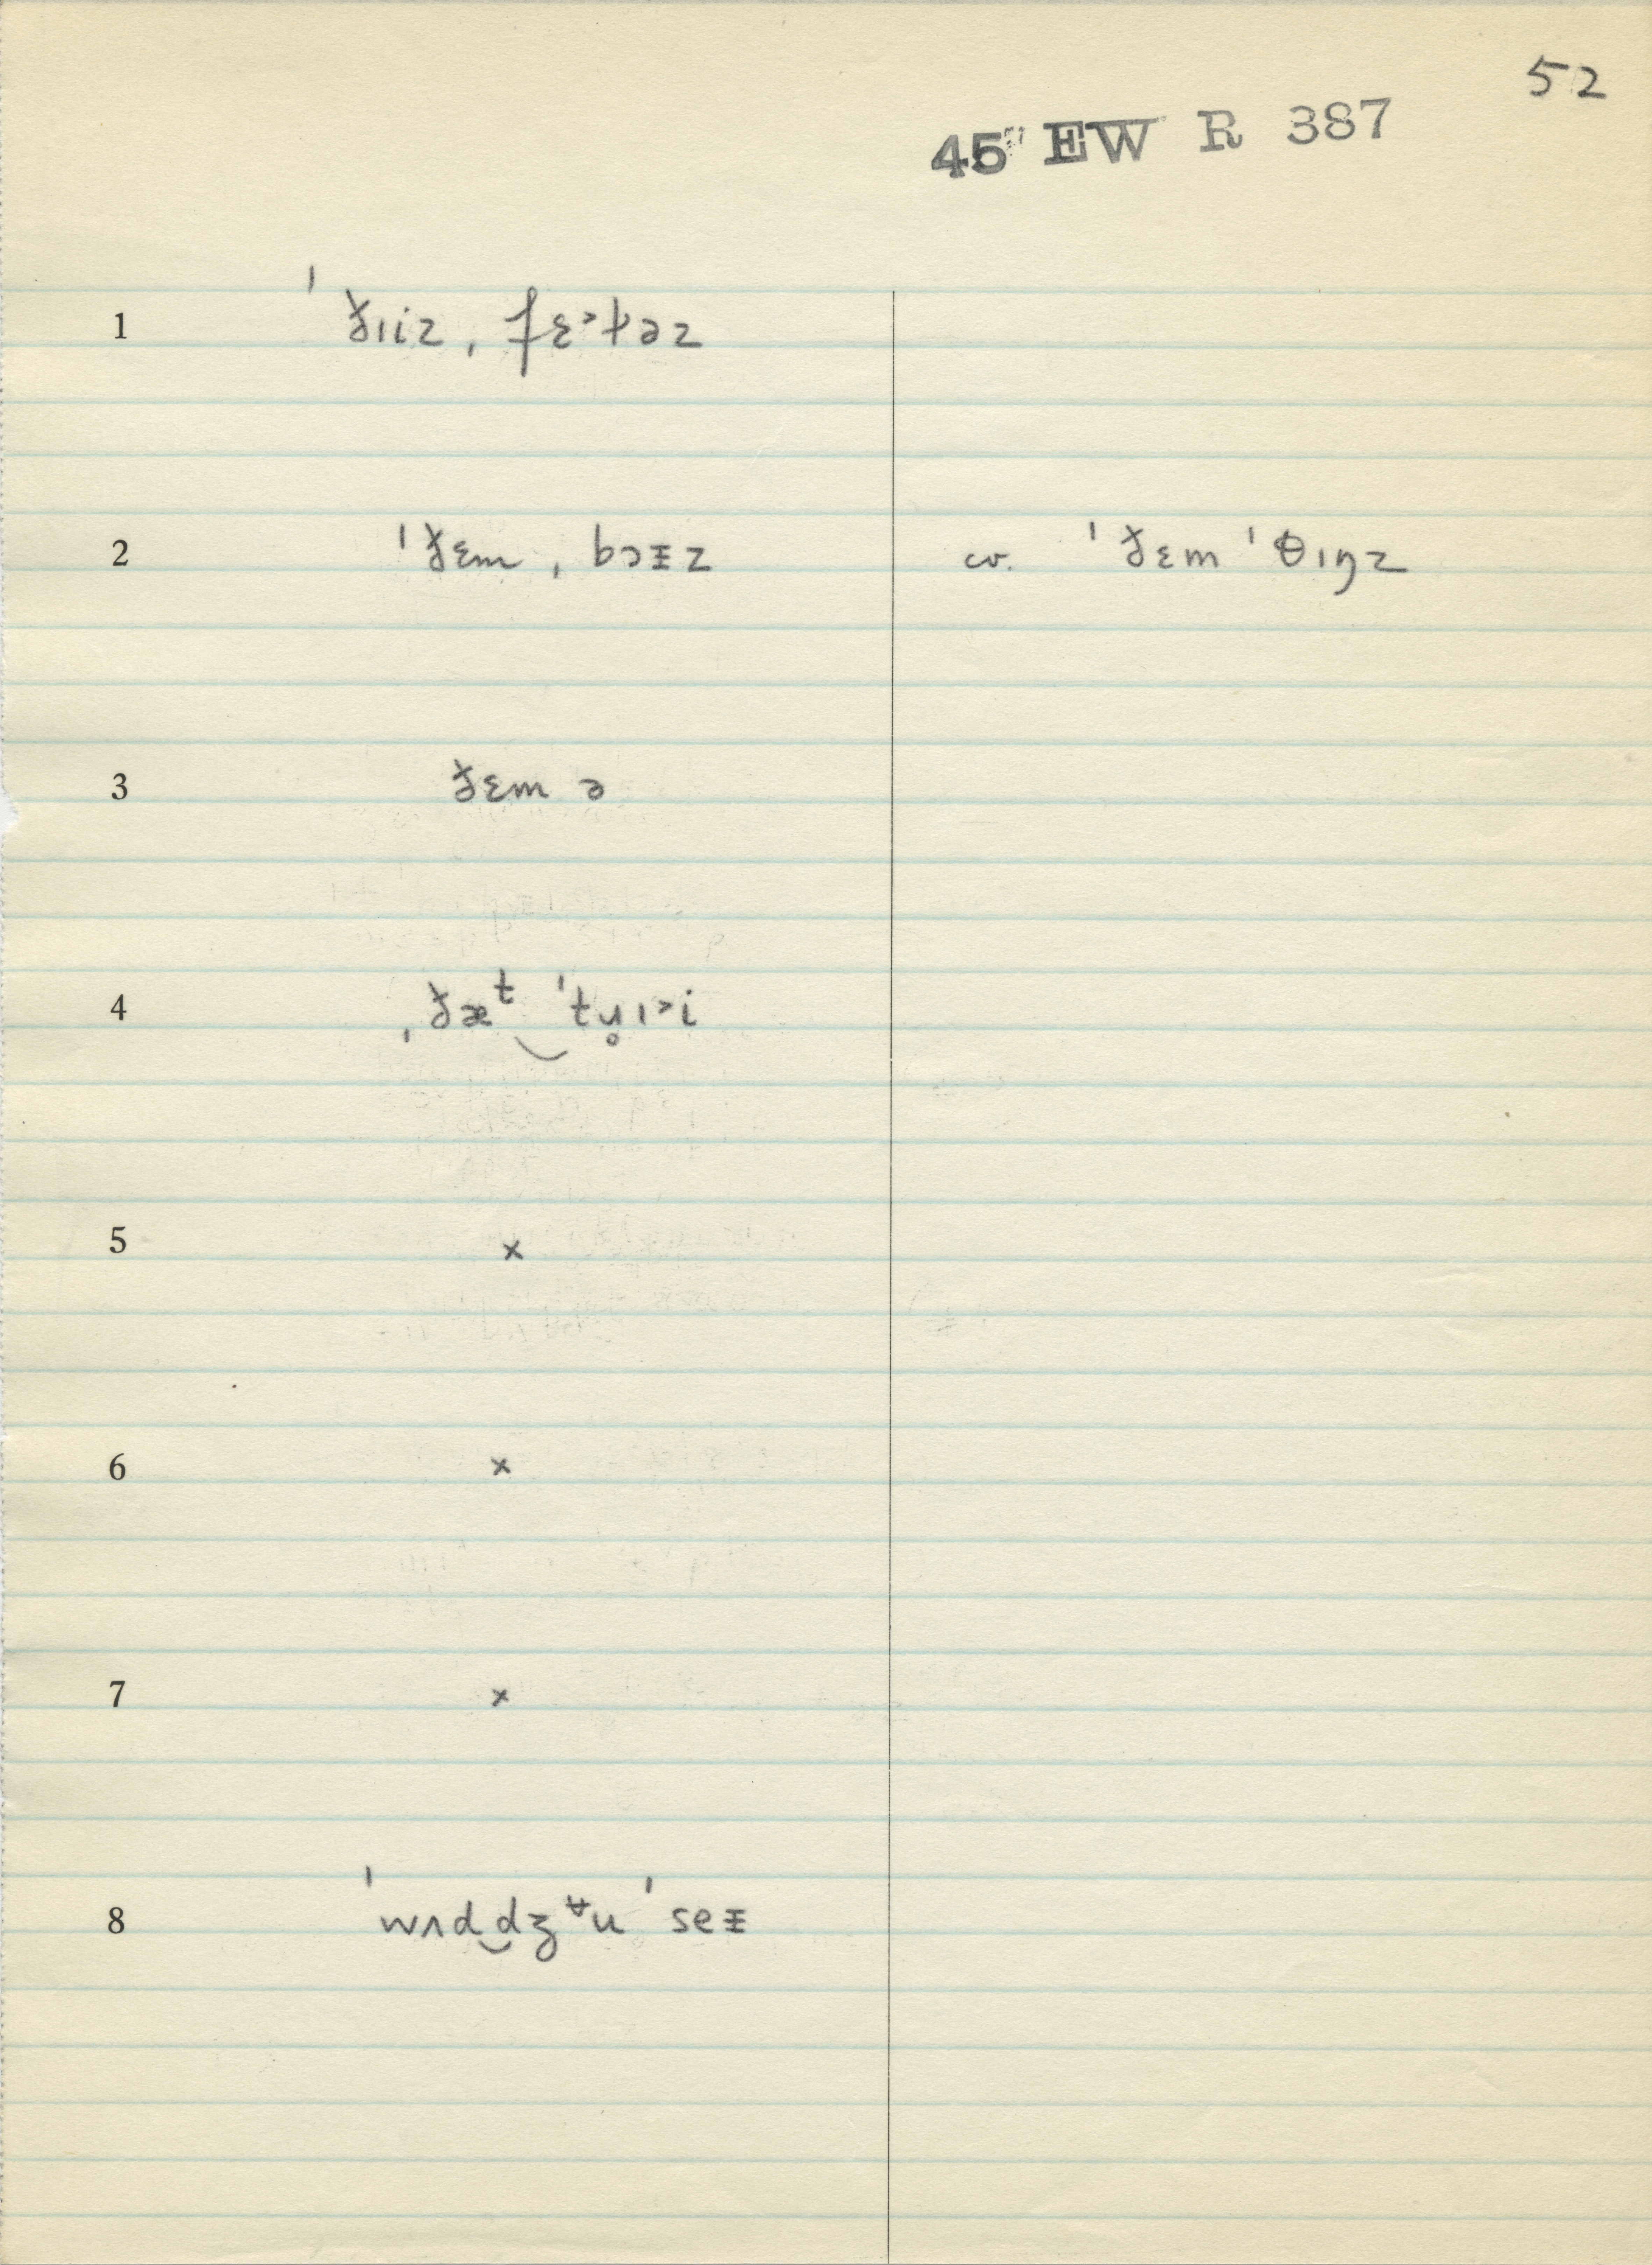 52
45 EW R 387
1 ˈð̵ɪiz ˌfɛ˃t̵əz
2 ˈð̵ɛm ˌbɔᵻz cv. ˈð̵ɛm ˈθɪŋz
3 ð̵ɛm ə
4 ˌð̵æᵗ‿ˈtɥ̥ɪ˃i
5 ×
6 ×
7 ×
8 ˈwʌd‿dʒᵿu ˈseᵻ